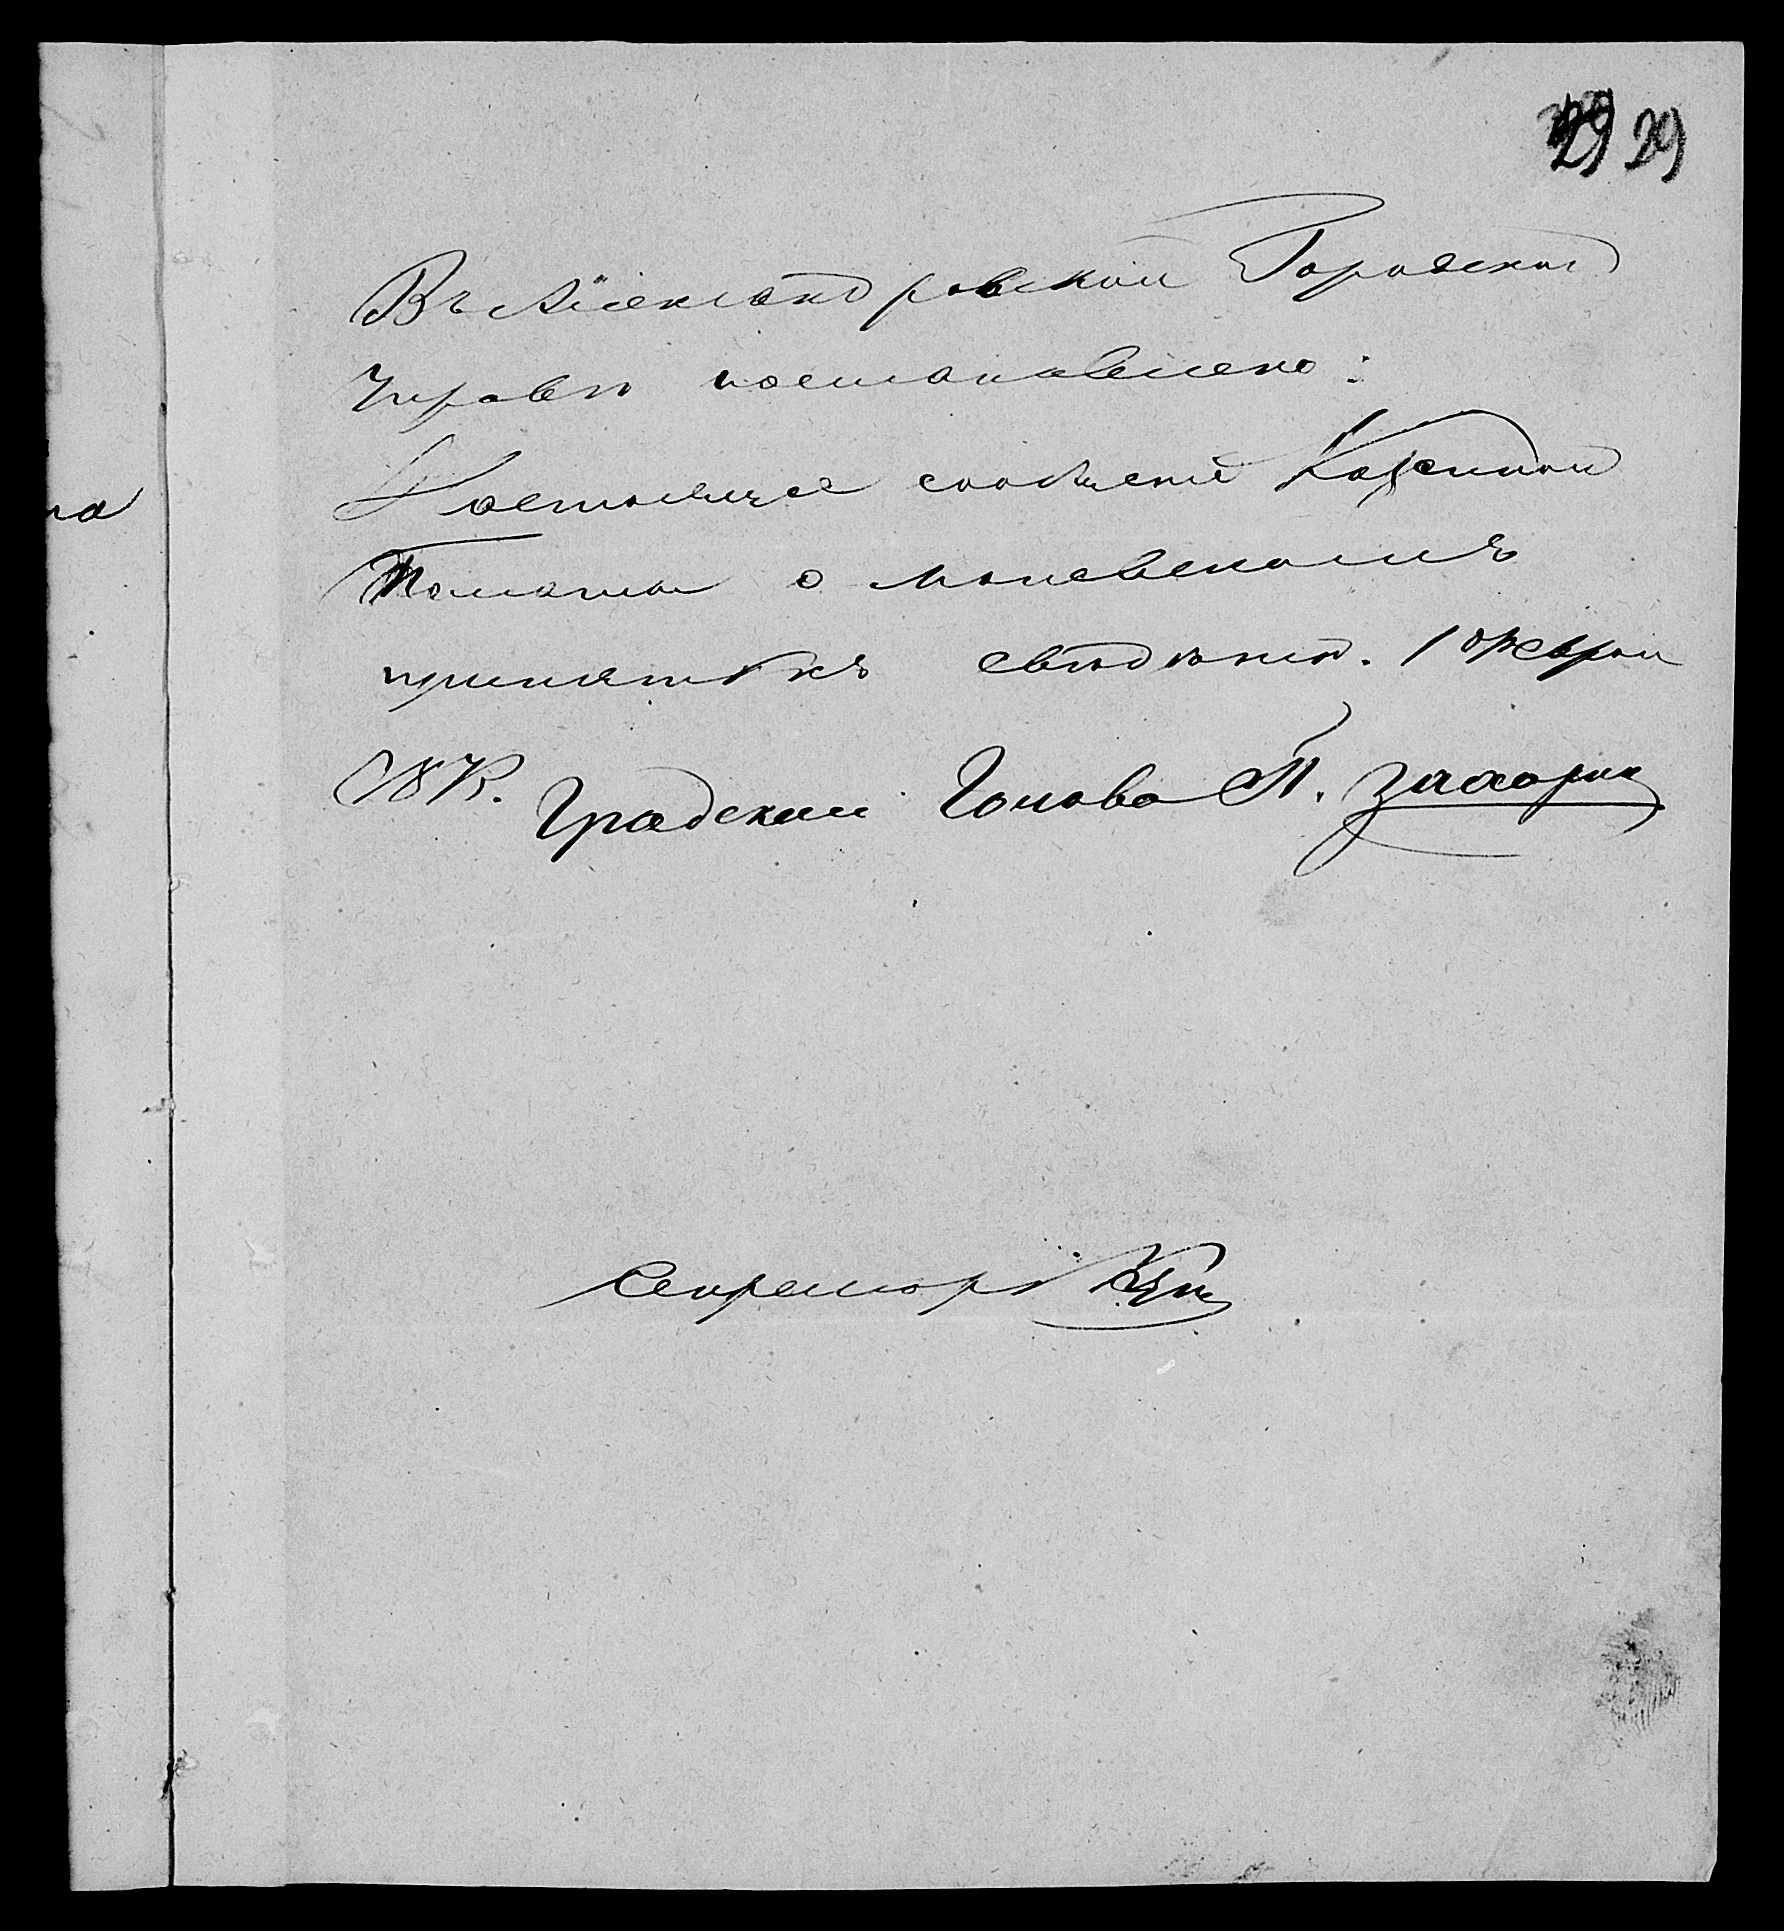 29 29
Въ Александровской Городской
Управѣ постановлено:
Настоящее сообщеніе Казенной
Палаты о
принять къ свѣдѣнію. 1 Феврал
Градской Голова П. Захарин
Секретарь
на